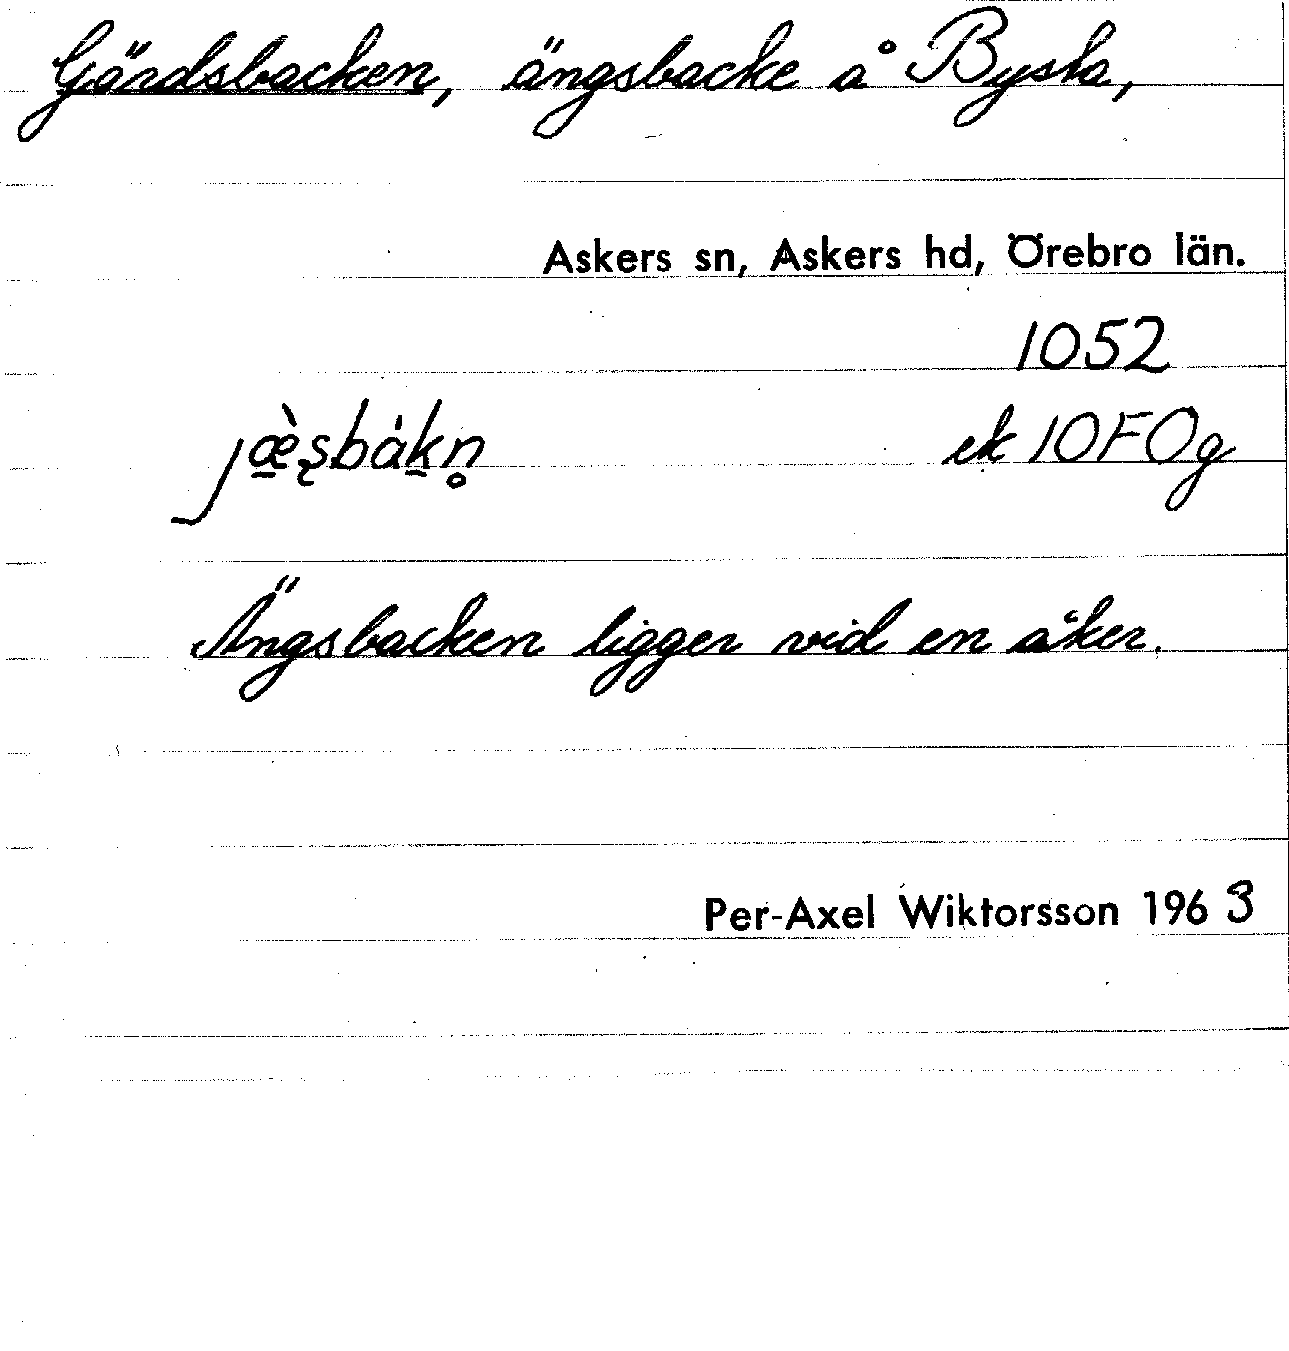 Gärdsbacken, ängsbacke å Bysta,
Askers sn, Askers hd, Örebro län.
1052
jæ̠̀ʂbák̠n̥ ek 10F0g
Ängsbacken ligger vid en åker.
Per-Axel Wiktorsson 1963